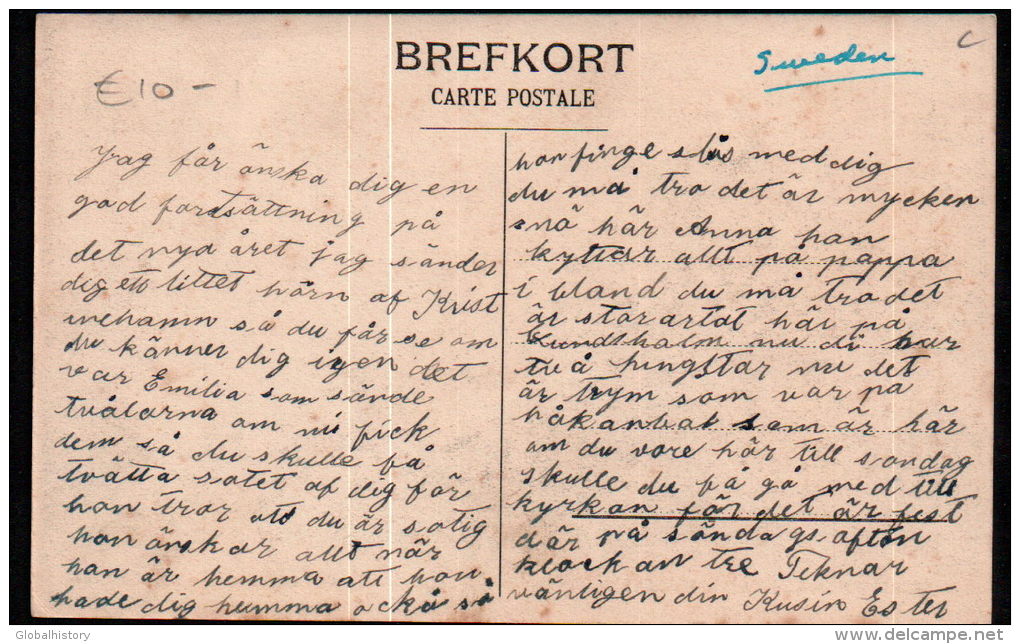 BREFKORT
CARTE POSTALE
Sweden
€10-
Jag får önska dig en
god fortsättning på
det nya året jag sänder
dig ett littet hörn af Krist
inehamn så du får se om
du känner dig igen det
var Emilia som sände
tvålarna om ni fick
dem så du skulle få
tvätta sotet af dig för
hon tror att du är sotig
hon önskar allt när
han är hemma att hon
hade dig hemma också så
hon finge slås med dig
du må tro det är mycken
snö här Anna hon
kyttar allt på pappa
i bland du må tro det
är storartat här på
nu di har
två hingstar nu det
är Trym som var på
som är här
om du vore här till söndag
skulle du få gå med till
kyrkan för det är fest
där på söndags afton
klockan tre Teknar
vänligen din Kusin Ester
Globalhistory
delcampe.net